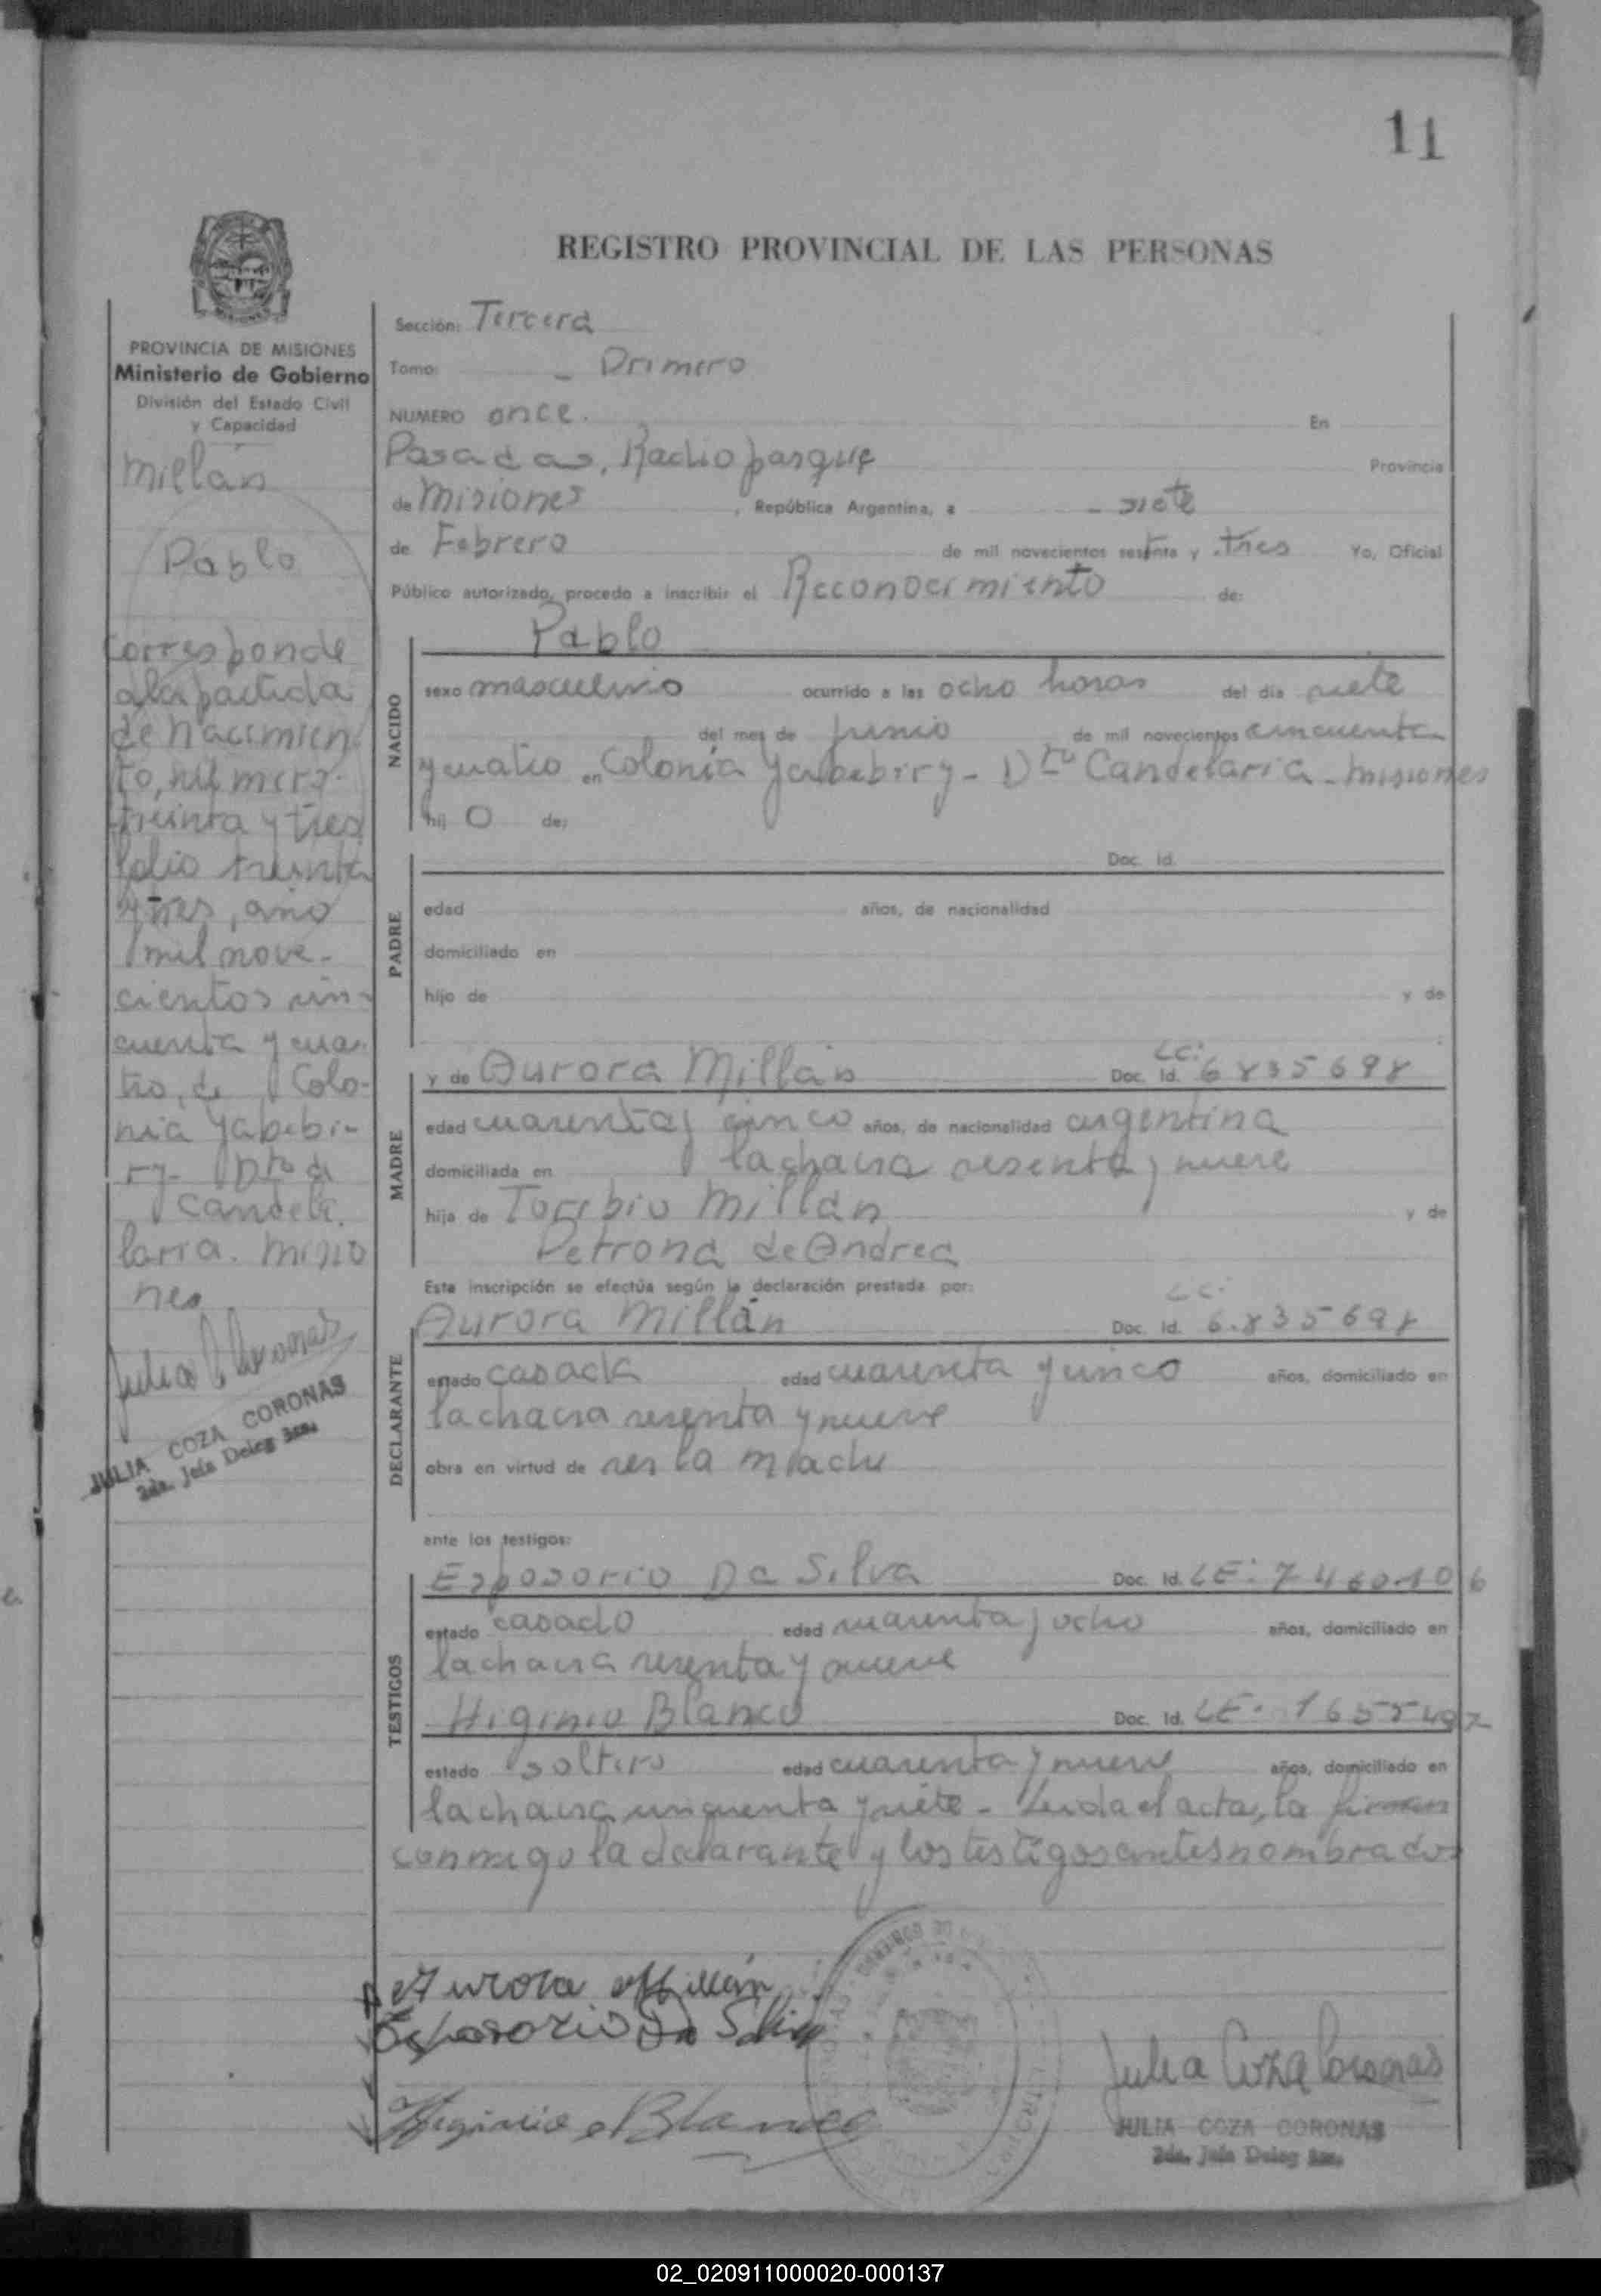 11
REGISTRO PROVINCIAL DE LAS PERSONAS
PROVINCIA DE MISIONES
Ministerio de Gobierno
División del Estado Civil
y Capacidad
Millán
Pablo
Corresponde
a la partida
de Nacimien
to, número
treinta y tres
folio treinta
y tres, año
mil nove-
cientos cin-
cuenta y cua-
tro, de Colo-
nia Yabebi-
ry- Dto de
Candela
laria. Misio
nes
JULIA COZA CORONAS
2da. Jefa Deleg 3ra.
Sección: Tercera
Tomo: - Primero
NUMERO once. En
Posadas, Radio parque Provincia
de Misiones, República Argentina, a - siete
de Febrero de mil novecientos setenta y tres Yo, Oficial
Público autorizado, procedo a inscribir el Reconocimiento de:
NACIDO
Pablo
sexo masculino ocurrido a las ocho horas del día siete
del mes de junio de mil novecientos cincuenta
y cuatro en Colonia Yabebiry - Dto Candelaria - Misiones
hij o de:
PADRE
Doc. Id.
edad años, de nacionalidad
domiciliado en
hijo de y de
MADRE
y de Aurora Millán Doc. Id. LC: 6835698
edad cuarenta y cinco años, de nacionalidad argentina
domiciliada en la chacra sesenta y nueve
hija de Toribio Millán y de
Petrona de Andrea
Esta inscripción se efectúa según la declaración prestada por:
DECLARANTE
Aurora Millán Doc. Id. LC: 6.835698
estado casada edad cuarenta y cinco años, domiciliado en
la chacra sesenta y nueve
obra en virtud de ser la madre
ante los testigos:
TESTIGOS
Esposorio Da Silva Doc. Id. LE: 7460106
estado casado edad cuarenta y ocho años, domiciliado en
la chacra sesenta y nueve
Higinio Blanco Doc. Id. LE. 1655497
estado soltero edad cuarenta y nueve años, domiciliado en
la chacra cincuenta y siete - Leida el acta, la firman
conmigo la declarante y los testigos antes nombrados
Aurora Millán
Esposorio Da Silva
Higinio Blanco
Julia Coza Coronas
JULIA COZA CORONAS
2da. Jefa Deleg 3ra.
02_020911000020-000137